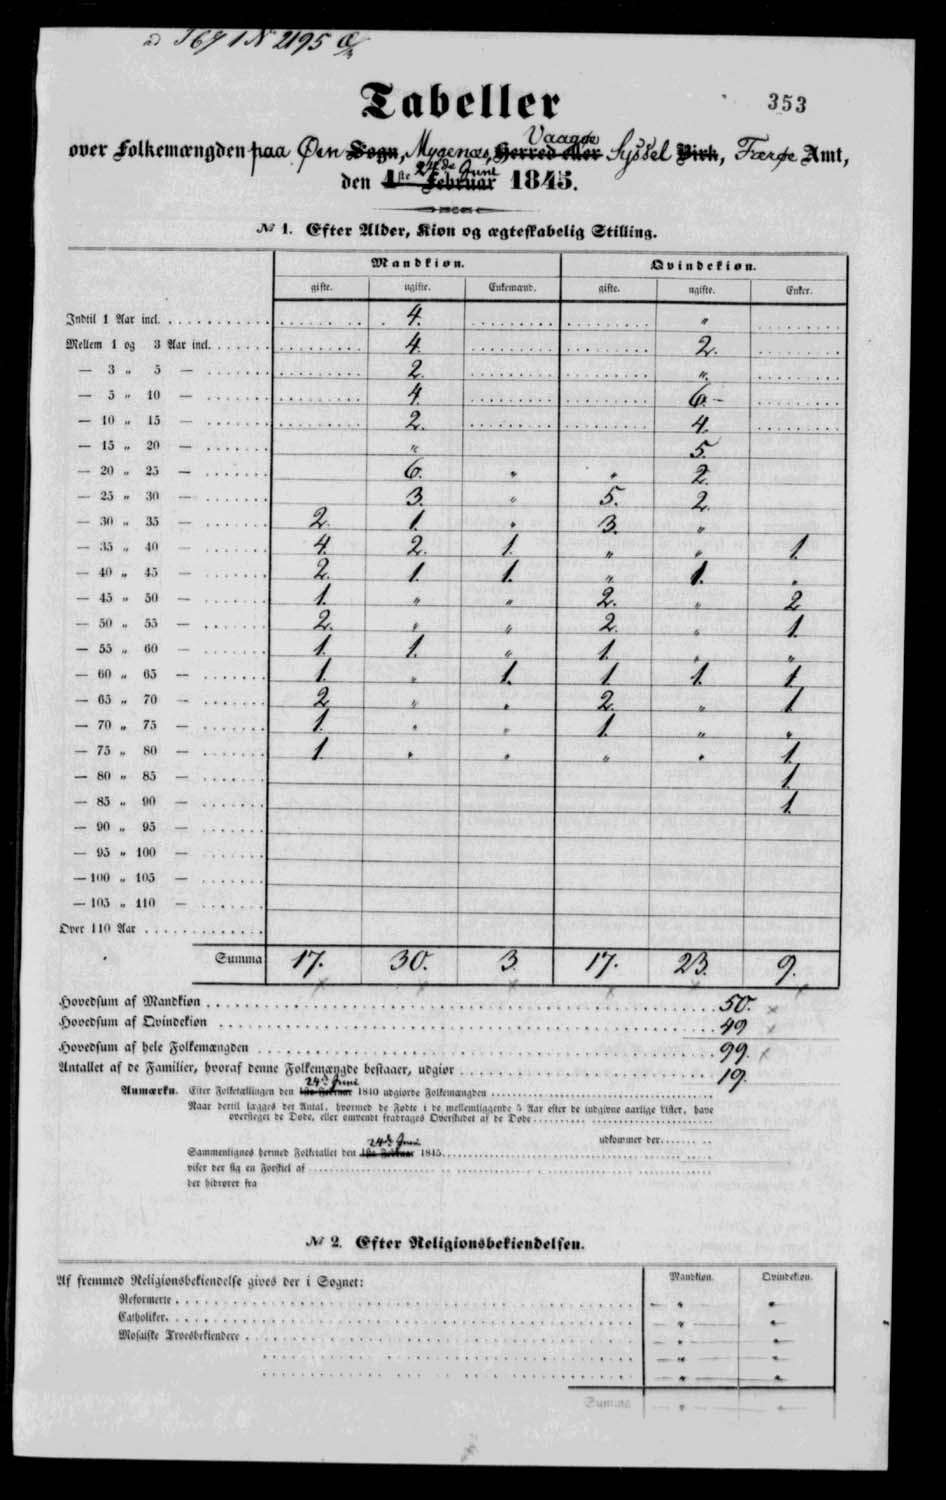 ad 1691 N 2195
353
Tabeller
over Folkemængden paa Øen Sogn, Mygenæs, Vaagøe Herred eller Syssel Birk, Færøe Amt,
den 1ste Februar 24de Juni 1845.
№ 1. Efter Alder, Kion og ægteskabelig Stilling.
Mandkion. Qvindekion.
gifte. ugifte. Enkemænd. gifte. ugifte. Enker.
Indtil 1 Aar incl. 4. "
Mellem 1 og 3 Aar incl. 4. 2.
— 3 " 5 — 2. "
— 5 " 10 — 4. 6.-
— 10 " 15 — 2. 4.
— 15 " 20 — " 5.
— 20 " 25 — 6. " " 2.
— 25 " 30 — 3. " 5. 2.
— 30 " 35 — 2. 1. " 3. "
— 35 " 40 — 4. 2. 1. " " 1.
— 40 " 45 — 2. 1. 1. " 1. "
— 45 " 50 — 1. " " 2. " 2
— 50 " 55 — 2. " " 2. " 1.
— 55 " 60 — 1. 1. " 1. " "
— 60 " 65 — 1. " 1. 1. 1. 1
— 65 " 70 — 2 " " 2. " 1.
— 70 " 75 — 1. " " 1. " "
— 75 " 80 — 1. " " " " 1.
— 80 " 85 — 1.
— 85 " 90 — 1.
— 90 " 95 —
— 95 " 100 —
— 100 " 105 —
— 105 " 110 —
Over 110 Aar
Summa 17. 30. 3. 17. 23. 9.
Hovedsum af Mandkion 50.
Hovedsum af Qvindekion 49
Hovedsum af hele Folkemængden 99.
Antallet af de Familier, hvoraf denne Folkemængde bestaaer, udgiør 19.
24de Juni
Anmærkn. Efter Folketællingen den 1ste Februar 1840 udgiorde Folkemængden
Naar dertil lægges det Antal, hvormed de Fødte i de mellemliggende 5 Aar efter de indgivne aarlige Lister, have
oversteget de Døde, eller omvendt fradrages Overskudet af de Døde
udkommer der
24de Juni
Sammenlignes hermed Folketallet den 1ste Februar 1845
viser der sig en Forskiel af
der hidrører fra
№ 2. Efter Religionsbekiendelsen.
Af fremmed Religionsbekiendelse gives der i Sognet: Mandkion. Qvindekion.
Reformerte — " — "
Catholiker — " — "
Mosaiske Troesbekiendere — " — "
— " — "
— " — "
Summa — " — "